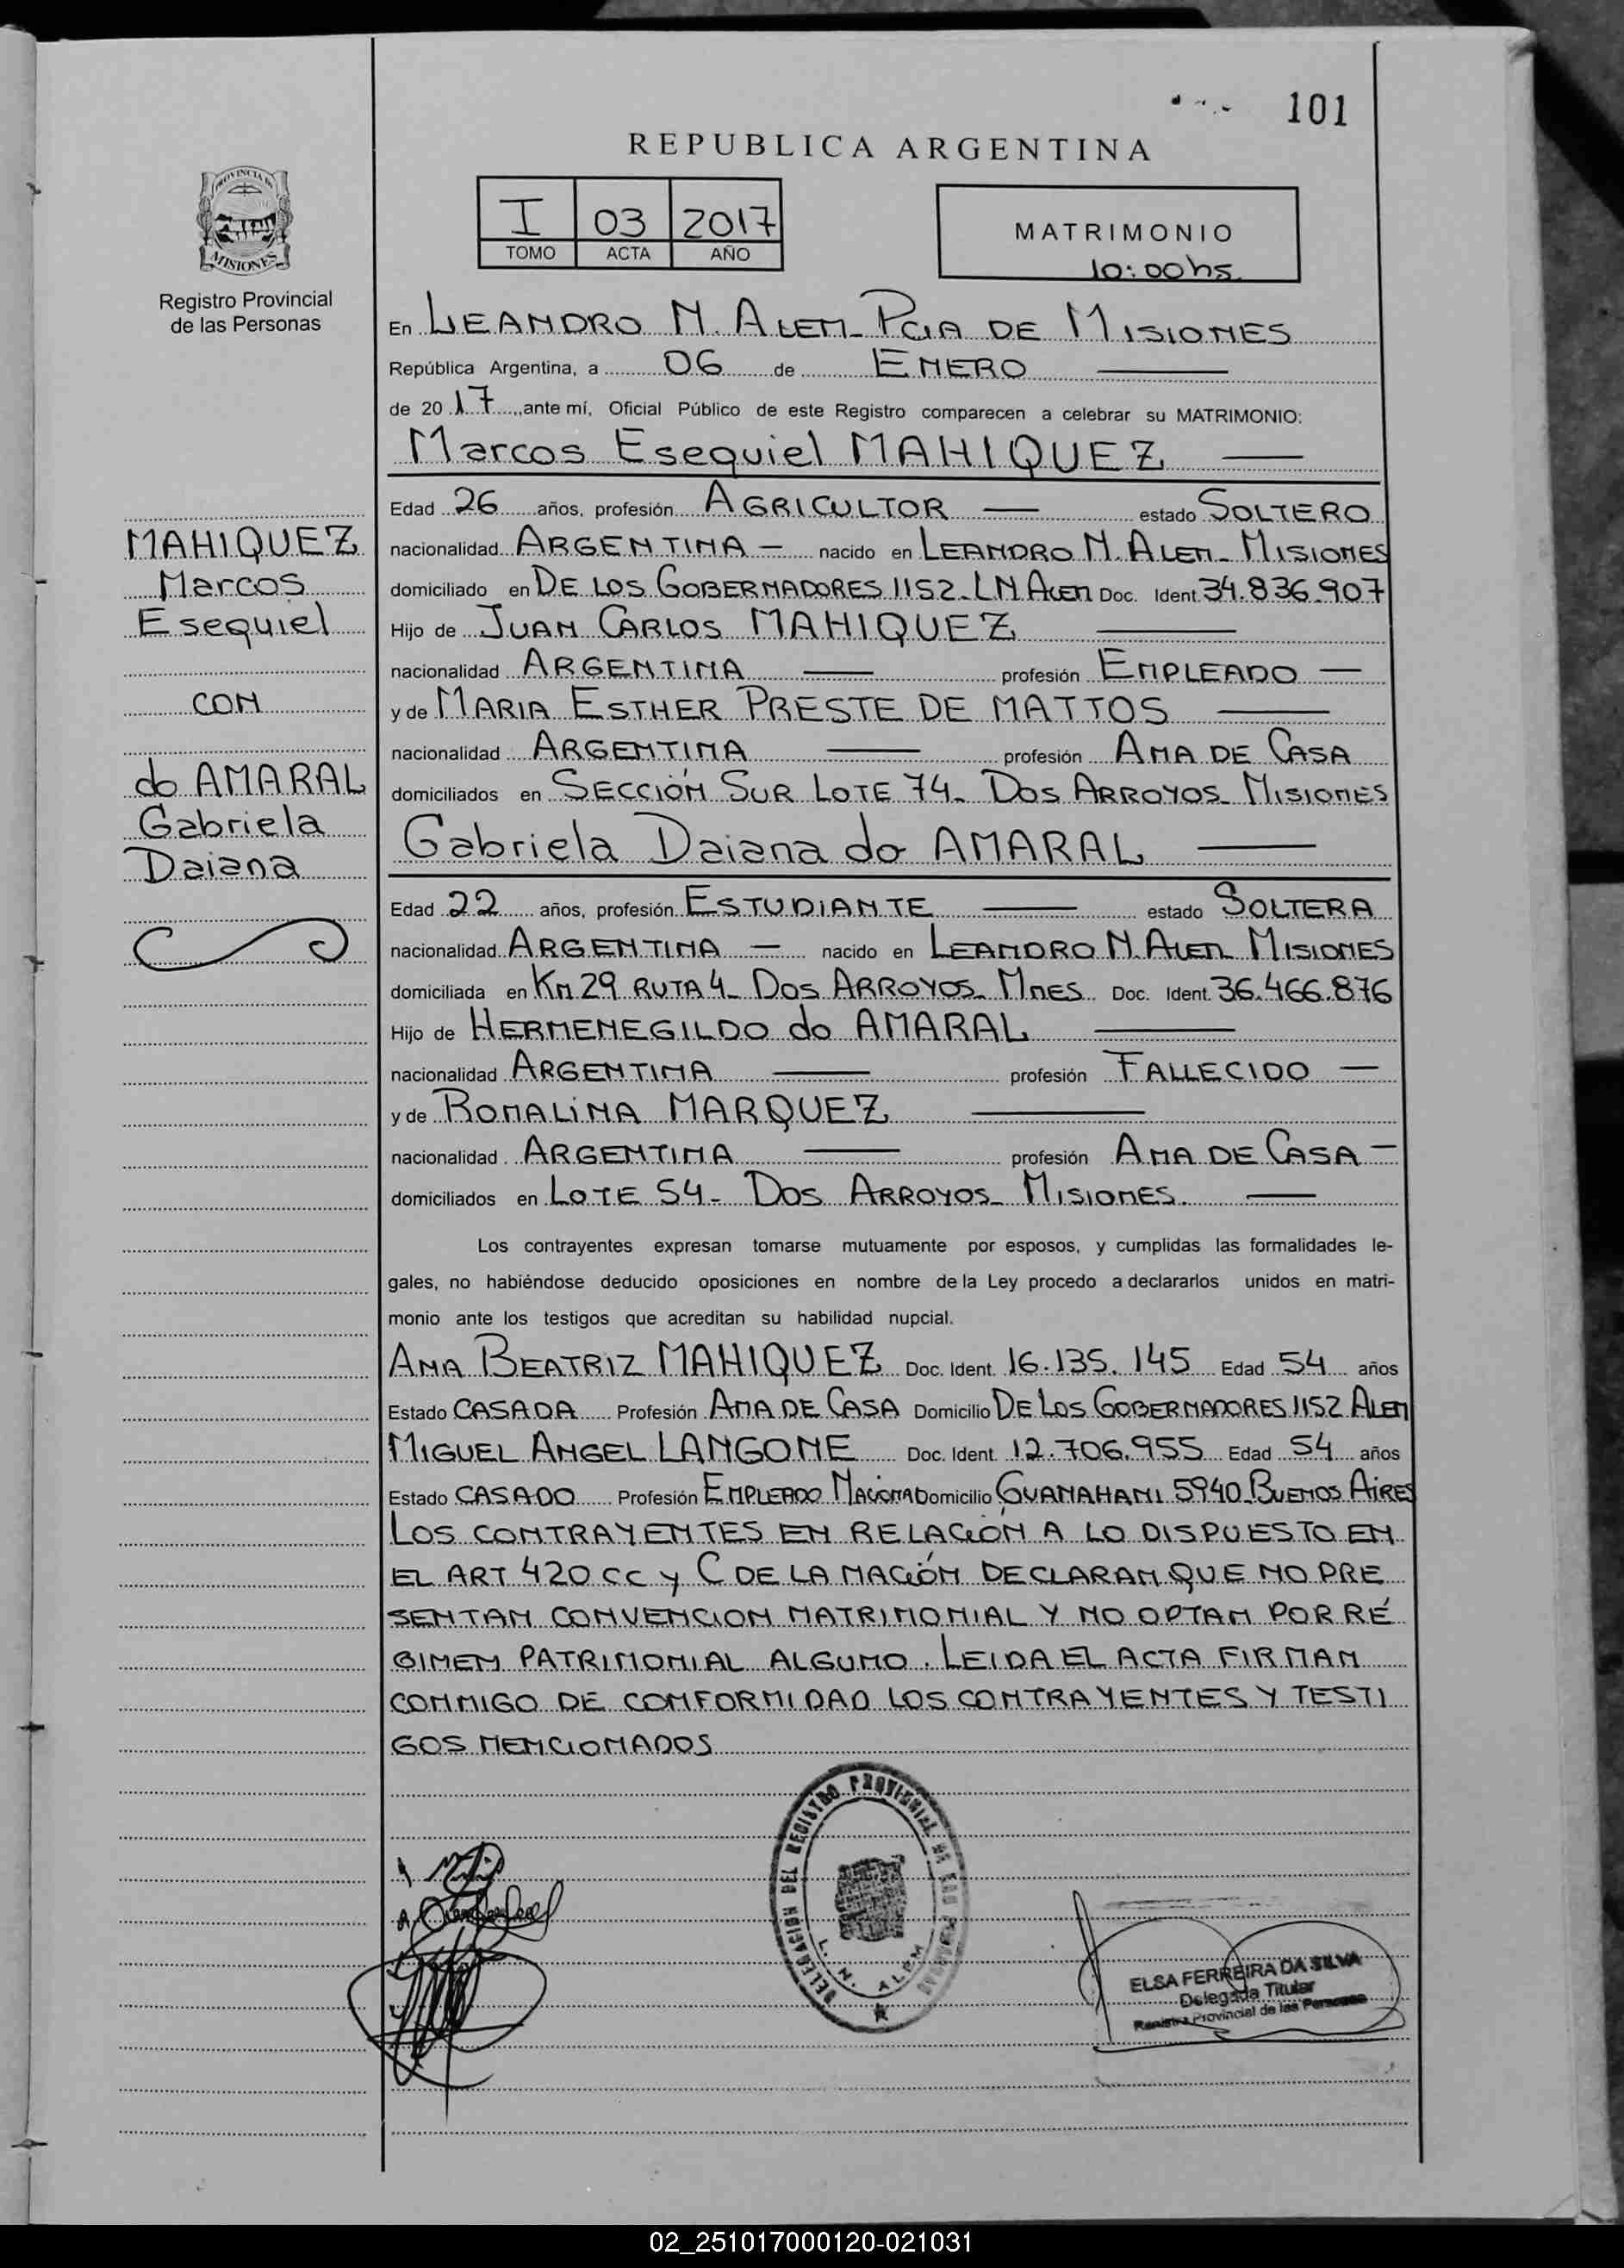 101
REPUBLICA ARGENTINA
PROVINCIA DE
MISIONES
Registro Provincial
de las Personas
I 03 2017
TOMO ACTA AÑO
MATRIMONIO
10:00 hs.
En LEANDRO N. ALEM - PCIA DE MISIONES
República Argentina, a 06 de ENERO
de 20 17, ante mí, Oficial Público de este Registro comparecen a celebrar su MATRIMONIO:
Marcos Esequiel MAHIQUEZ
Edad 26 años, profesión AGRICULTOR estado SOLTERO
nacionalidad ARGENTINA - nacido en LEANDRO N. ALEM - MISIONES
domiciliado en DE LOS GOBERNADORES 1152 - LN ALEM Doc. Ident. 34.836.907
Hijo de JUAN CARLOS MAHIQUEZ
nacionalidad ARGENTINA profesión EMPLEADO
y de MARIA ESTHER PRESTE DE MATTOS
nacionalidad ARGENTINA profesión AMA DE CASA
domiciliados en SECCIÓN SUR LOTE 74 - DOS ARROYOS - MISIONES
Gabriela Daiana do AMARAL
Edad 22 años, profesión ESTUDIANTE estado SOLTERA
nacionalidad ARGENTINA - nacido en LEANDRO N. ALEM MISIONES
domiciliada en KM 29 RUTA 4 - DOS ARROYOS - MNES Doc. Ident. 36.466.876
Hijo de HERMENEGILDO do AMARAL
nacionalidad ARGENTINA profesión FALLECIDO
y de ROMALINA MARQUEZ
nacionalidad ARGENTINA profesión AMA DE CASA
domiciliados en LOTE 54 - DOS ARROYOS - MISIONES.
Los contrayentes expresan tomarse mutuamente por esposos, y cumplidas las formalidades le-
gales, no habiéndose deducido oposiciones en nombre de la Ley procedo a declararlos unidos en matri-
monio ante los testigos que acreditan su habilidad nupcial.
ANA BEATRIZ MAHIQUEZ Doc. Ident. 16.135.145 Edad 54 años
Estado CASADA Profesión AMA DE CASA Domicilio DE LOS GOBERNADORES 1152 ALEM
MIGUEL ANGEL LANGONE Doc. Ident. 12.706.955 Edad 54 años
Estado CASADO Profesión EMPLEADO Domicilio GUANAHANI 5940 - BUENOS AIRES
LOS CONTRAYENTES EN RELACIÓN A LO DISPUESTO EN
EL ART 420 CC y C DE LA NACIÓN DECLARAN QUE NO PRE
SENTAN CONVENCION MATRIMONIAL Y NO OPTAN POR RÉ
GIMEN PATRIMONIAL ALGUNO. LEIDA EL ACTA FIRMAN
CONMIGO DE CONFORMIDAD LOS CONTRAYENTES Y TESTI
GOS MENCIONADOS
MAHIQUEZ
Marcos
Esequiel
CON
do AMARAL
Gabriela
Daiana
DELEGACION DEL REGISTRO PROVINCIAL DE LAS PERSONAS
L. N. ALEM
ELSA FERREIRA DA SILVA
Delegada Titular
Registro Provincial de las Personas
02_251017000120-021031